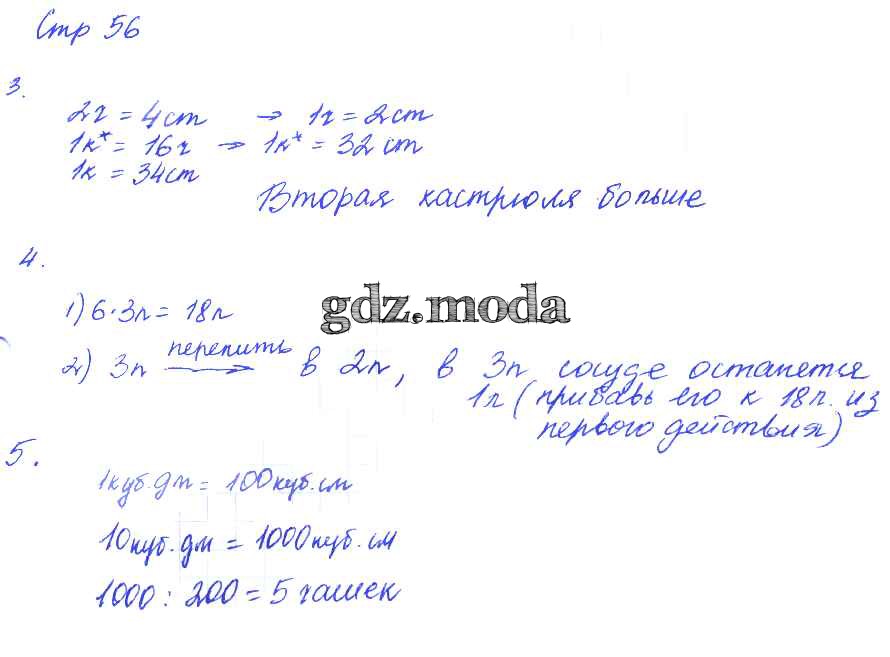 Стр 56
3.
2ч = 4ст → 1ч = 2ст
1к* = 16ч → 1к* = 32ст
1к = 34ст
Вторая кастрюля больше
4.
gdz.moda
1) 6·3л = 18л
2) 3л перелить → в 2л, в 3л сосуде останется
1л (прибавь его к 18л. из
первого действия)
5.
1куб.дм = 100куб.см
10куб.дм = 1000куб.см
1000 : 200 = 5 чашек